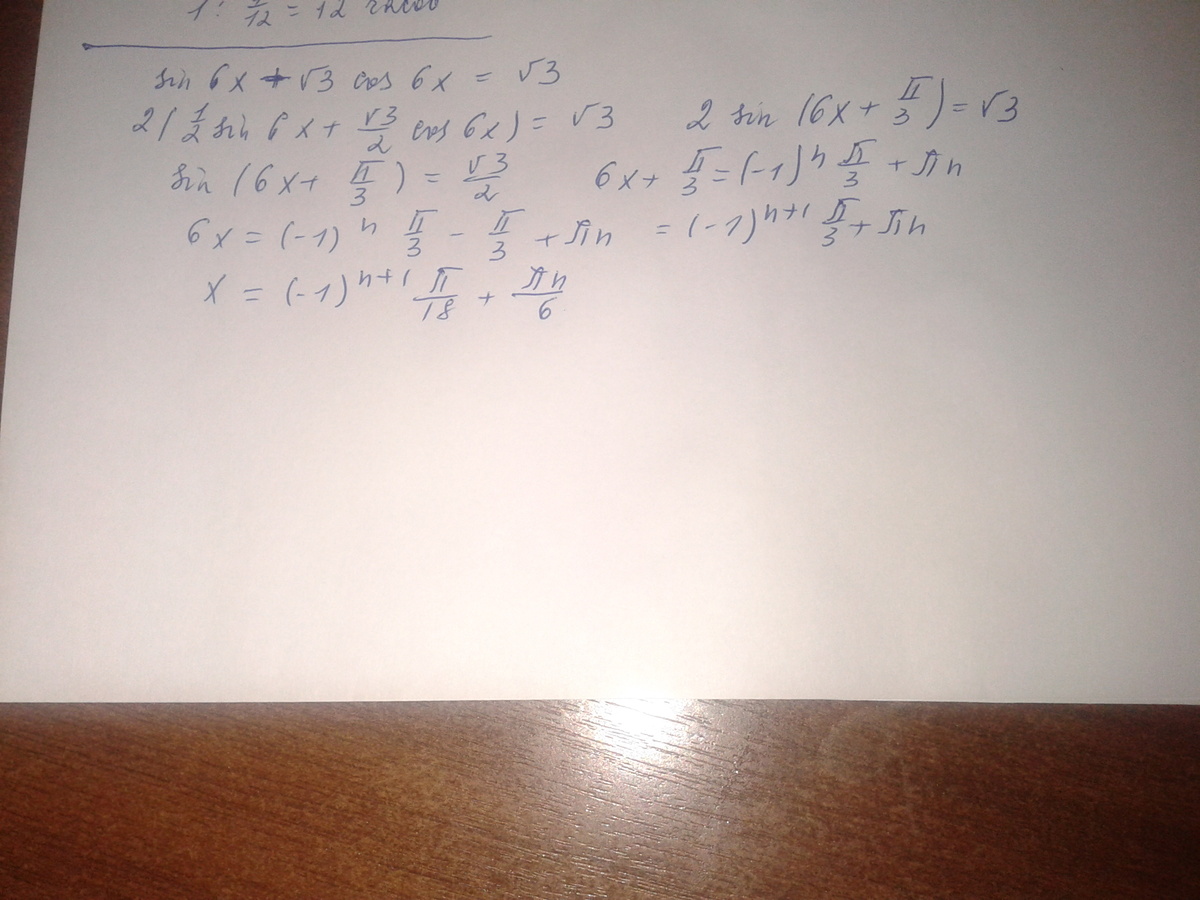 1 : 1/12 = 12 часов
sin 6x + √3 cos 6x = √3
2(1/2 sin 6x + √3/2 cos 6x) = √3 2 sin (6x + π/3) = √3
sin (6x + π/3) = √3/2 6x + π/3 = (-1)ⁿ π/3 + πn
6x = (-1)ⁿ π/3 - π/3 + πn = (-1)ⁿ⁺¹ π/3 + πn
x = (-1)ⁿ⁺¹ π/18 + πn/6